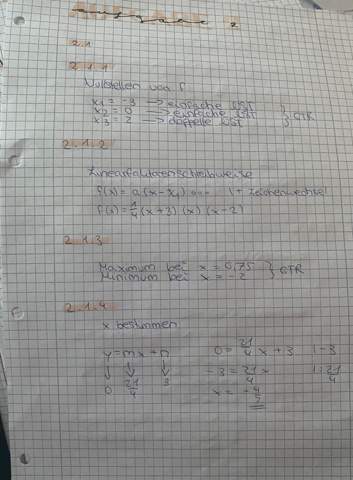 Aufgabe 2
2.1
2.1.1
Nullstellen von f
x₁ = -3 → einfache NST
x₂ = 0 → einfache NST
x₃ = 2 → doppelte NST } GTR
2.1.2
Linearfaktorenschreibweise
f(x) = a(x - x₁) ... | + Zeichenwechsel
f(x) = 1/4 (x+3) (x) (x-2)
2.1.3
Maximum bei x = 0,75
Minimum bei x = -2 } GTR
2.1.4
x bestimmen
y = mx + n 0 = 21/4 x + 3 | -3
↓ ↓ ↓ -3 = 21/4 x | : 21/4
0 21/4 3 x = -4/7